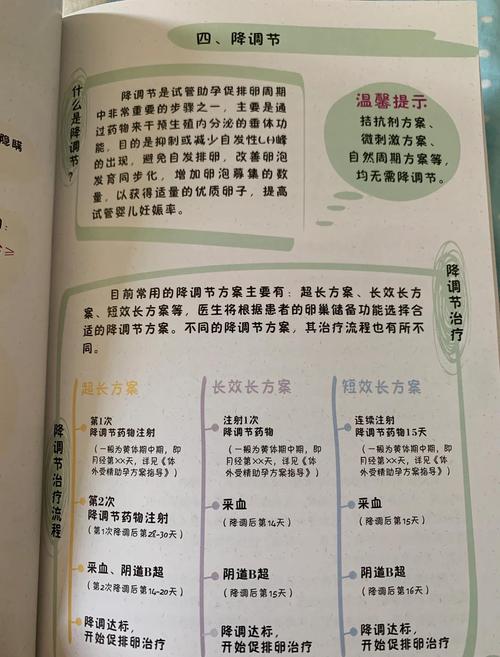 四、降调节
什么是降调节?
降调节是试管助孕促排卵周期
中非常重要的步骤之一，主要是通
过药物来干预生殖内分泌的垂体功
能，目的是抑制或减少自发性LH峰
的出现，避免自发排卵，改善卵泡
发育同步化，增加卵泡募集的数
量，以获得适量的优质卵子，提高
试管婴儿妊娠率。
温馨提示
拮抗剂方案、
微刺激方案、
自然周期方案等，
均无需降调节。
隐瞒
降调节治疗
目前常用的降调节方案主要有：超长方案、长效长方
案、短效长方案等，医生将根据患者的卵巢储备功能选择合
适的降调节方案。不同的降调节方案，其治疗流程也有所不
同。
降调节治疗流程
超长方案
第1次
降调节药物注射
（一般为黄体期中期，即
月经第XX天，详见《体
外受精助孕方案指导》）
第2次
降调节药物注射
（第1次降调后第28-30天）
采血、阴道B超
（第2次降调后第14-20天）
降调达标，
开始促排卵治疗
长效长方案
注射1次
降调节药物
（一般为黄体期中期，即
月经第XX天，详见《体
外受精助孕方案指导》）
采血
（降调后第14天）
阴道B超
（降调后第15天）
降调达标，
开始促排卵治疗
短效长方案
连续注射
降调节药物15天
（一般为黄体期中期，即
月经第XX天，详见《体
外受精助孕方案指导》）
采血
（降调后第15天）
阴道B超
（降调后第16天）
降调达标，
开始促排卵治疗